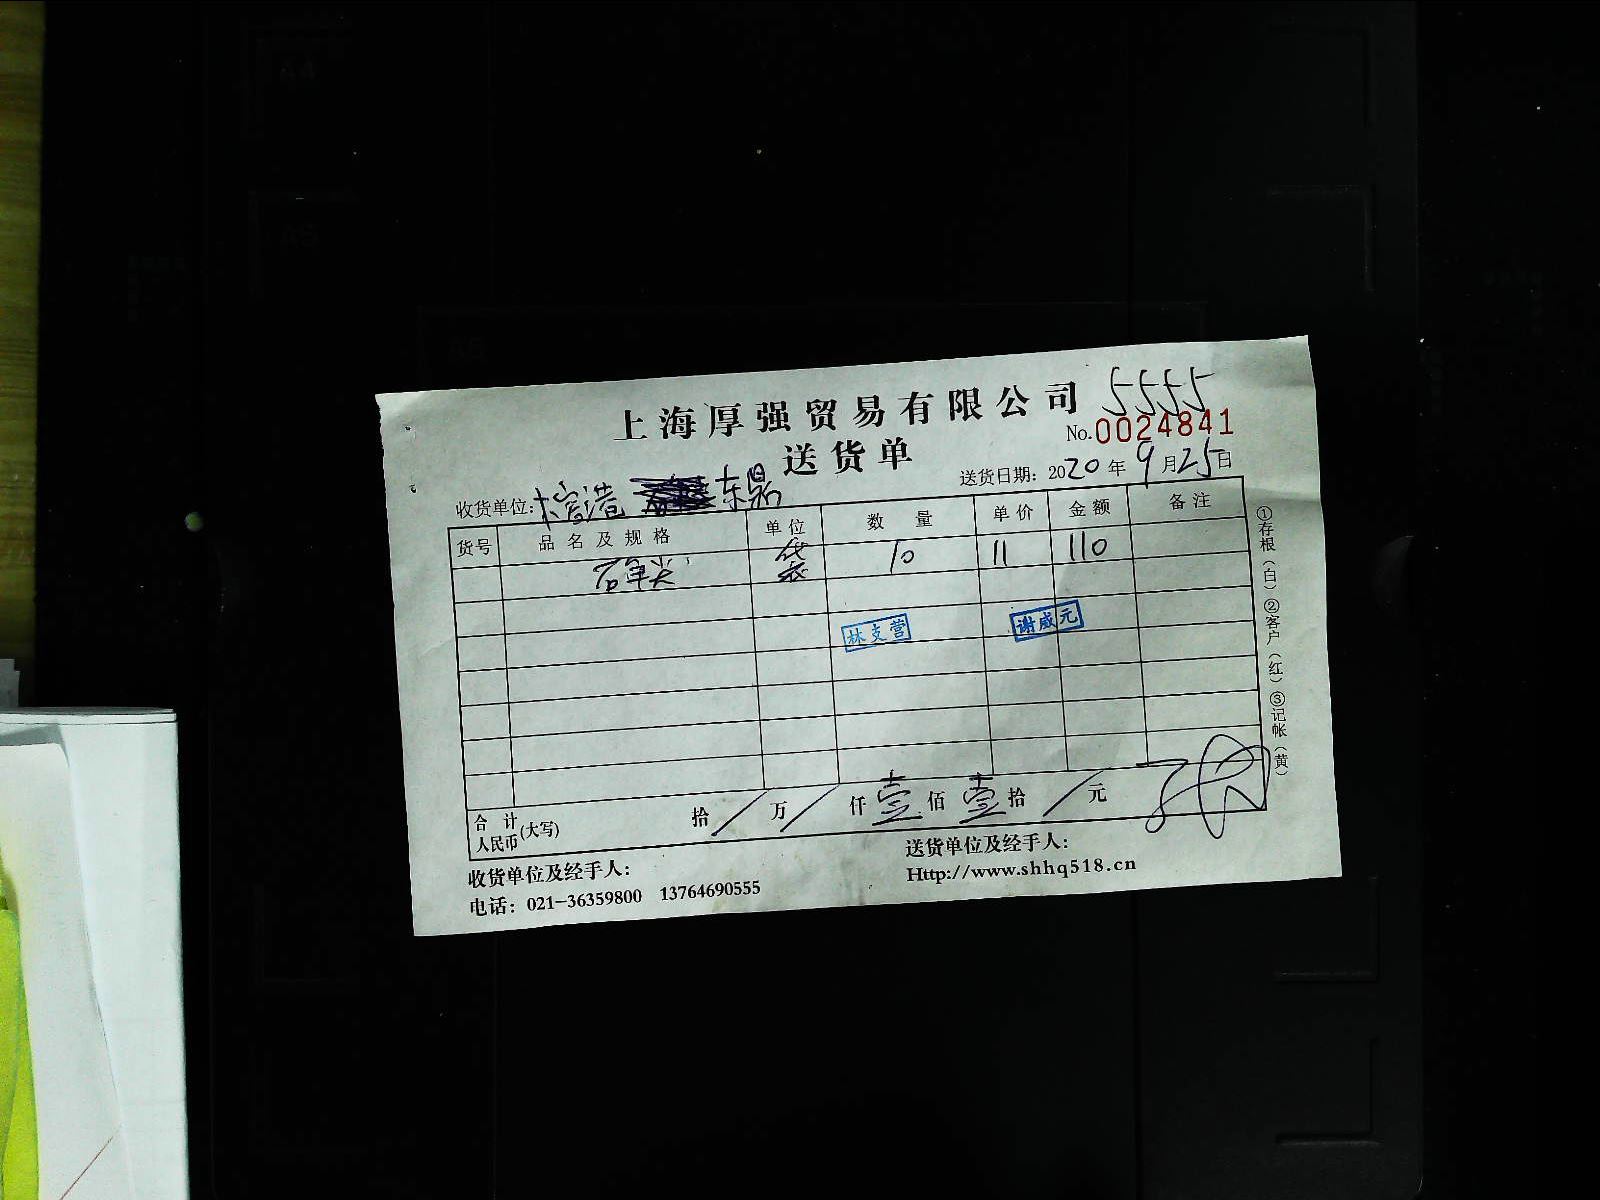 上海厚强贸易有限公司 5555
送货单 No.0024841
收货单位: 东鼎 送货日期: 2020年9月25日
货号 品名及规格 单位 数量 单价 金额 备注
袋 10 11 110
林支营 谢威元
合计人民币(大写) 拾/万/仟壹佰壹拾/元
收货单位及经手人: 送货单位及经手人:
电话: 021-36359800 13764690555 Http://www.shhq518.cn
①存根(白)②客户(红)③记帐(黄)